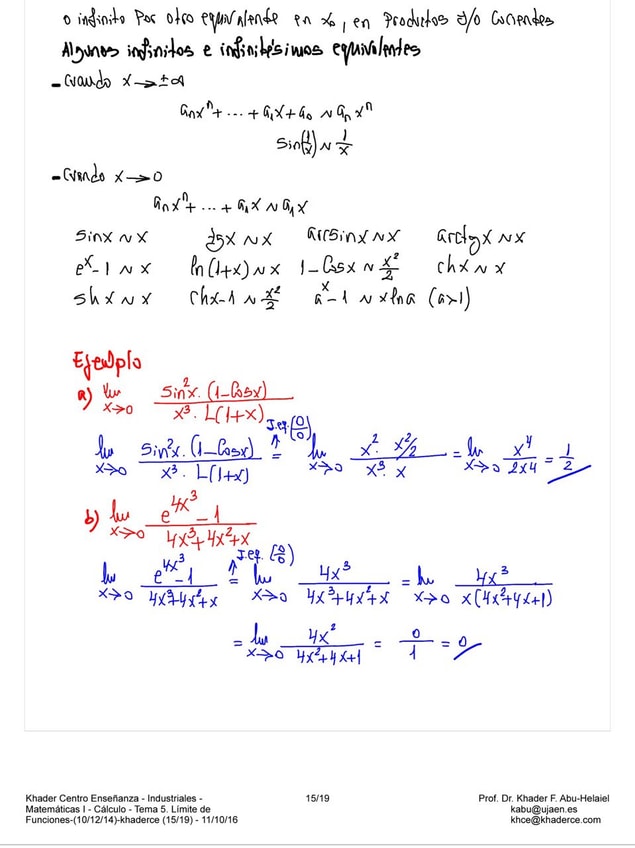 o infinito por otro equivalente en x₀, en productos y/o cocientes
Algunos infinitos e infinitésimos equivalentes
- Cuando x → ±∞
aₙxⁿ + ... + a₁x + a₀ ~ aₙxⁿ
Sin(1/x) ~ 1/x
- Cuando x → 0
aₙxⁿ + ... + a₁x ~ a₁x
sinx ~ x tgx ~ x arcsinx ~ x arctgx ~ x
eˣ-1 ~ x ln(1+x) ~ x 1-Cosx ~ x²/2 chx ~ x
shx ~ x chx-1 ~ x²/2 aˣ-1 ~ xlna (a>1)
Ejemplo
a) lim x→0 sin²x.(1-Cosx) / x³.L(1+x)
lim x→0 sin²x.(1-Cosx) / x³.L(1+x) = I.eq.(0/0) lim x→0 x². x²/2 / x³.x = lim x→0 x⁴/2x4 = 1/2
b) lim x→0 e^4x³ - 1 / 4x³+4x²+x
lim x→0 e^4x³-1 / 4x³+4x²+x = I.eq.(0/0) lim x→0 4x³ / 4x³+4x²+x = lim x→0 4x³ / x(4x²+4x+1)
= lim x→0 4x² / 4x²+4x+1 = 0/1 = 0
Khader Centro Enseñanza - Industriales -
Matemáticas I - Cálculo - Tema 5. Límite de
Funciones-(10/12/14)-khaderce (15/19) - 11/10/16
15/19
Prof. Dr. Khader F. Abu-Helaiel
kabu@ujaen.es
khce@khaderce.com